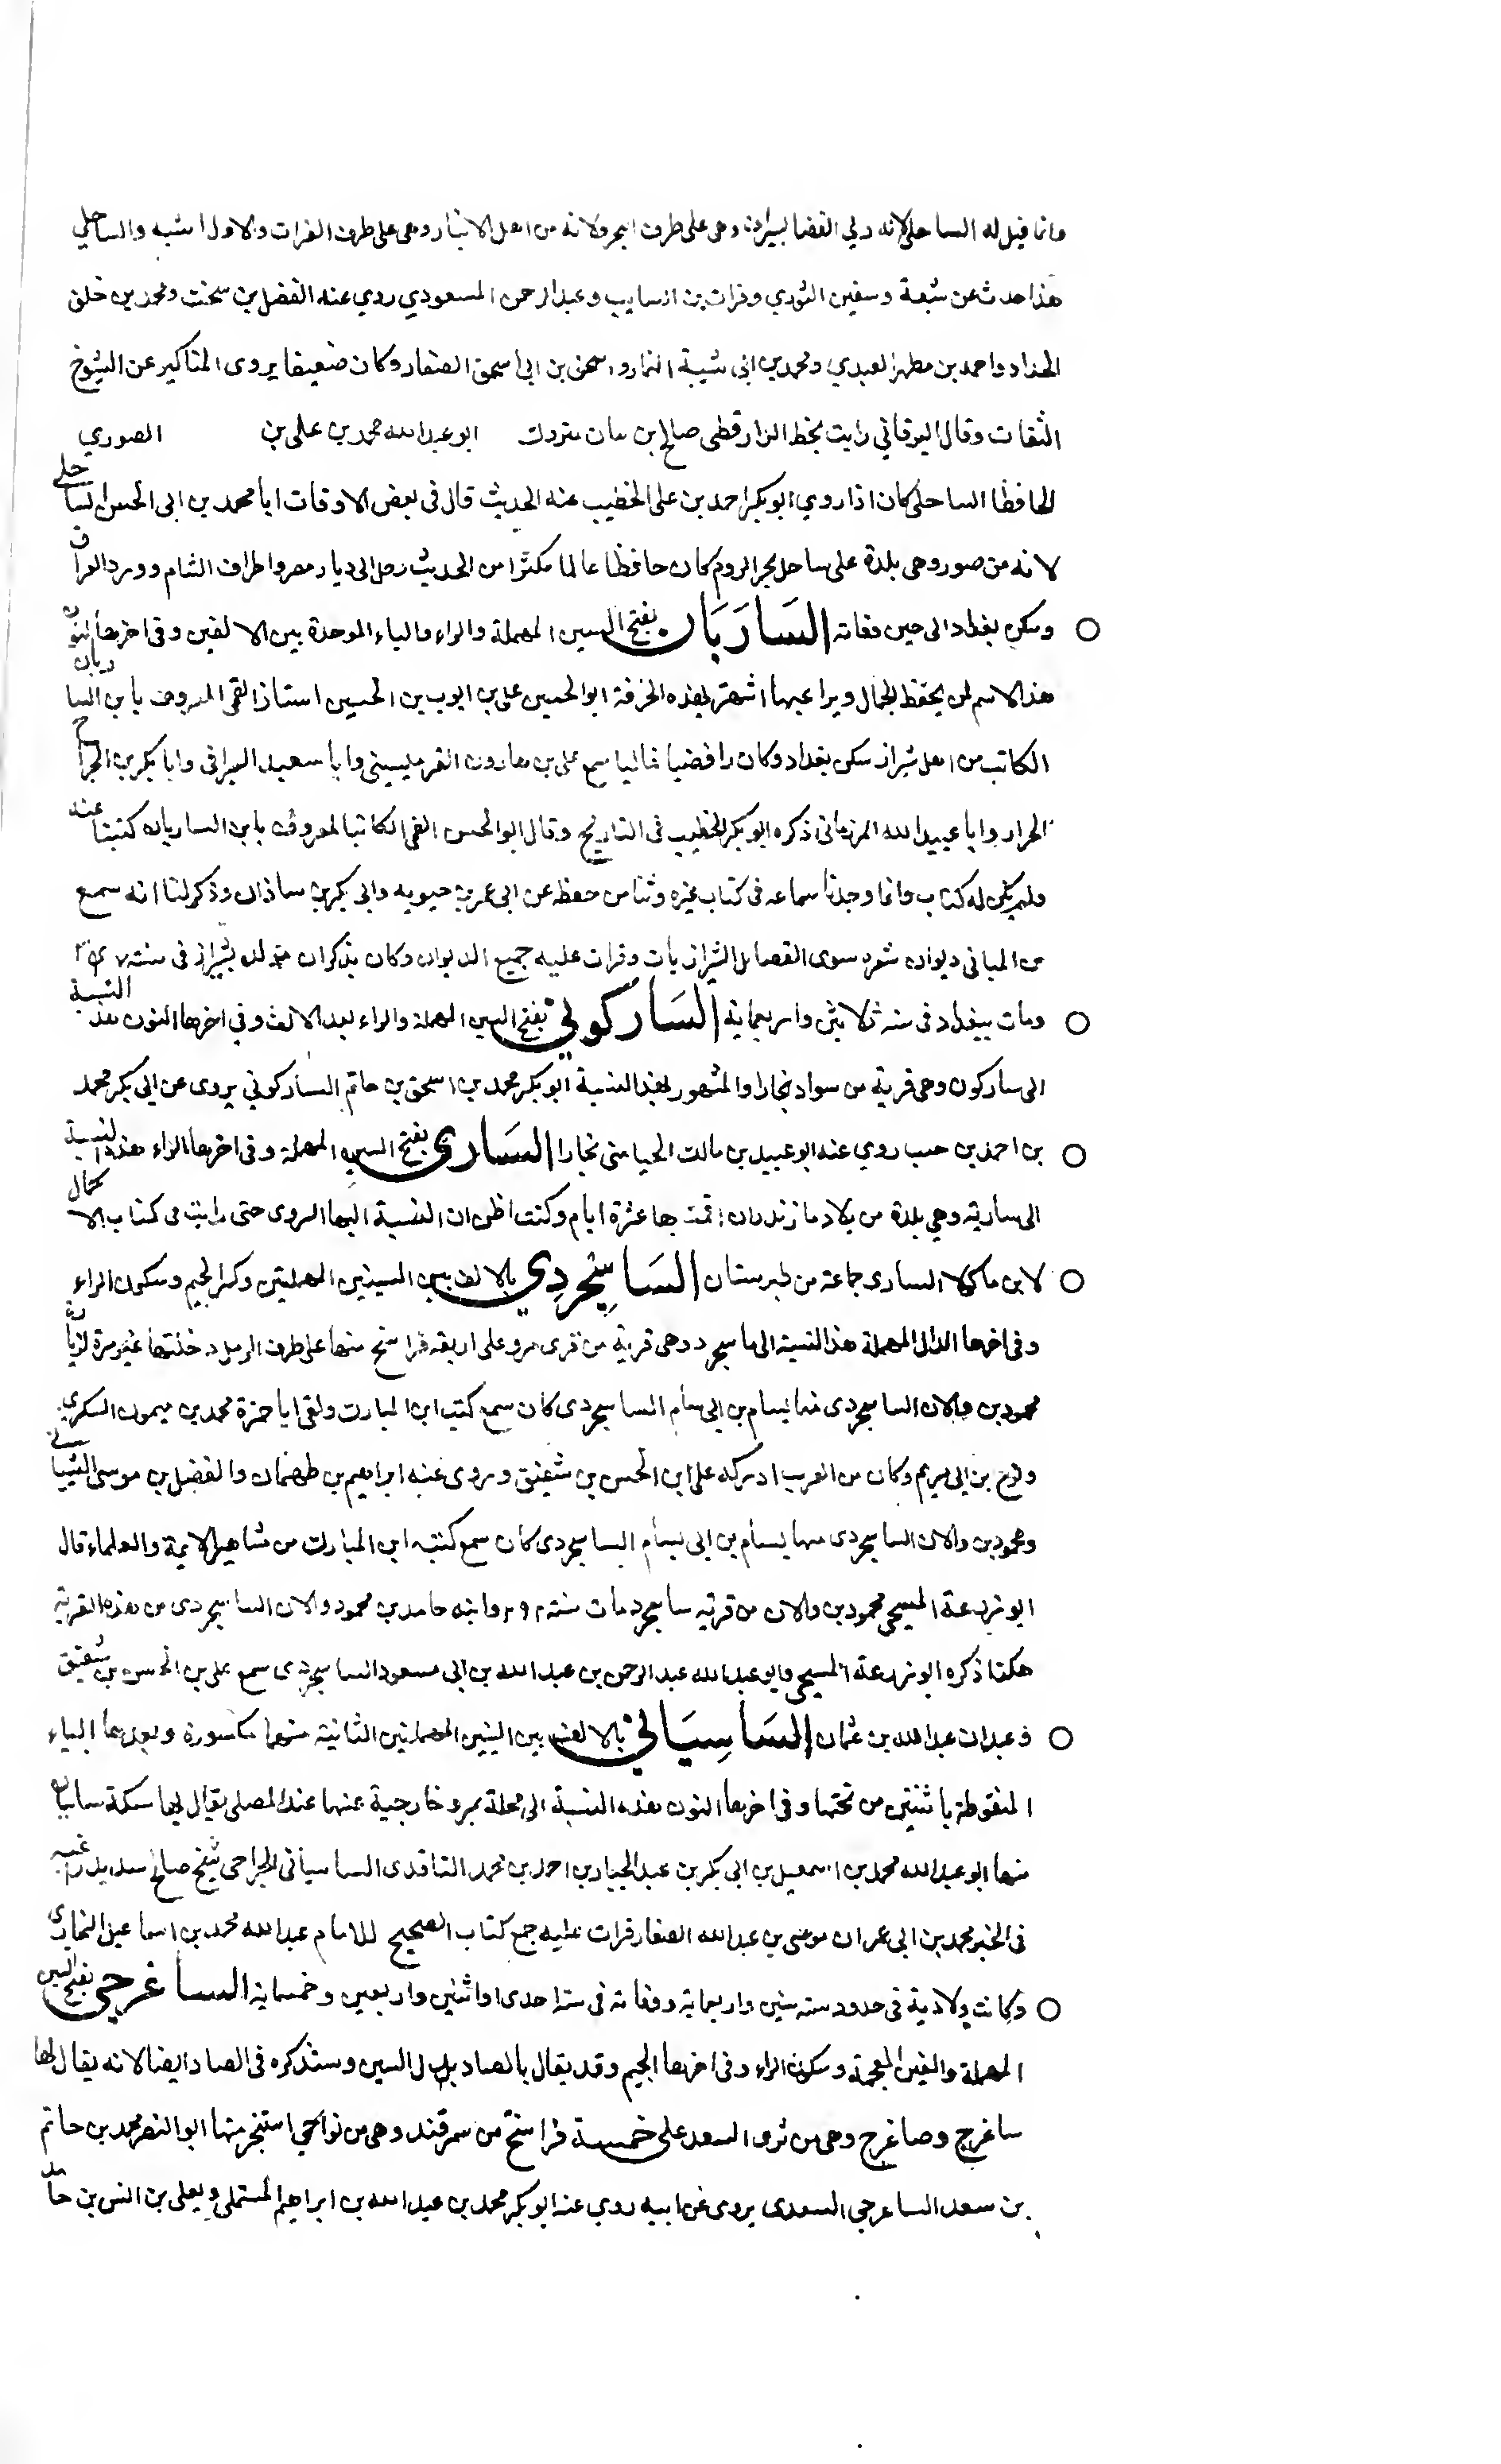 وانما قيل له الساحلي لانه ولي القضا بسيراف وهي على طرف البحر ولانه من اهل الانبار وهي على طرف الفرات والاول اشبه والساحلي
هذا حدث عن شعبة وسفين الثوري وفرات بن السايب وعبد الرحمن المسعودي روي عنه الفضل بن سخت ومحمد بن خلف
الحداد واحمد بن مطهر العبدي ومحمد بن ابى شيبة التمار واسحق بن ابى اسحق الصفار وكان ضعيفا يروى المناكير عن الشيوخ
الثقات وقال البرقاني رايت بخط الدارقطي صالح بن بيان متروك ابو عبد الله محمد بن على بن الصوري
الحافظ الساحلى كان اذا روي ابو بكر احمد بن على الخطيب عنه الحديث قال فى بعض الاوقات ابا محمد بن ابى الحسن الساحلي
لانه من صور وهى بلدة على ساحل بحر الروم كان حافظا عالما مكثرا من الحديث رحل الى ديار مصر واطراف الشام وورد العراق
وسكن بغداد الى حين وفاته السَارَبَان بفتح السين المهملة والراء والباء الموحدة بين الالفين وفى اخرها النون
هذا الاسم لمن يحفظ الجمال ويراعيها اشتهر بهذه الحرفة ابو الحسين على بن ايوب بن الحسين استاذ القمى المعروف بابن الساربان
الكاتب من اهل شيراز سكن بغداد وكان رافضيا غاليا سمع على بن هارون القرميسينى وابا سعيد السيرافى وابا بكر بن الجراح
الحراز وابا عبيد الله المرزبانى ذكره ابو بكر الخطيب فى التاريخ وقال ابو الحسن القمى الكاتب المعروف بابن الساربان كتبنا عنه
ولم يكن له كتاب وانما وجدنا سماعه فى كتاب غيره وثنا من حفظه عن ابى عمر بن حيويه وابى بكر بن ساذان وذكر لنا انه سمع
من المبانى ديوان شعره سوى القصايل الشيرازيات وقرات عليه جميع الديوان وكان يذكر ان مولده بشيراز فى سنة
ومات ببغداد فى سنه ثلاثين واربعماية السَاركوني بفتح السين المهملة والراء بعد الالف وفي اخرها النون هذه النسبة
الى ساركون وهى قرية من سواد بخارا والمشهور بهذا النسبة ابو بكر محمد بن اسحق بن حاتم الساركوني يروى عن ابى بكر محمد
بن احمد بن حبب روي عنه ابو عبيد بن مالك الحيامى بخارا السَارى بفتح السين المهملة وفى اخرها الراء هذا النسبة
الى سارية وهى بلدة من بلاد مازندران اقمت بها عشرة ايام وكنت اظن ان النسبة اليها السروى حتى رايت فى كتاب الاكمال
لابن ماكولا السارى جماعة من طبرستان السَاسِجرِدِي بالالف بين السينين المهملتين وكسر الجيم وسكون الراء
وفى اخرها الدال المهملة هذا النسبة الى ساسجرد وهى قرية من قرى مرو على اربعة فراسخ منها على طرف الرمل دخلتها غير مرة لزيارة
محمود بن والان الساسجردى منها بسام بن ابى بسام الساسجردى كان سمع كتب ابن المبارك ولقى ابا حمزة محمد بن ميمون السكري
ونوح بن ابى مريم وكان من العرب ادركه على ابن الحسن بن شقيق وروى عنه ابراهيم بن طهمان والفضل بن موسى الشيبانى
ومحمود بن والان الساسجردى منها بسام بن ابى بسام الساسجردى كان سمع كتب ابن المبارك من مشاهير الايمة والعلماء قال
ابو زرعة المسيحى محمود بن والان من قرية ساسجرد مات سنة ٢٩٢ وابنه حامد بن محمود والان الساسجردى من هذه القرية
هكذا ذكره ابو زرعة المسيحى وابو عبد الله عبد الرحمن بن عبد الله بن ابى مسعود الساسجردى سمع على بن الحسن بن شقيق
وعبدان عبد الله بن عثمان السَاسِيَاني بالالف بين السينين المهملتين الثانية منهما مكسورة وبعدهما الياء
المنقوطة باثنتين من تحتها وفى اخرها النون هذه النسبة الى محلة بمرو خارجية عنها عند المصلى يقال لها سكة ساسيان
منها ابو عبد الله محمد بن اسمعيل بن ابى بكر بن عبد الجبار بن احمد بن محمد الناقدى الساسيانى الجراحى شيخ صالح سديد راغب
فى الخير محمد بن ابى عمران موسى بن عبد الله الصفار قرات عليه جميع كتاب الصحيح للامام عبد الله محمد بن اسماعيل البخارى
وكانت ولادته فى حدود سنه ستين واربعماية ووفاته فى سنة احدى او اثنين واربعين وخمسماية الساغرجى بفتح السين
المهملة والغين المعجمة وسكون الراء وفى اخرها الجيم وقد يقال بالصاد بدل السين وسنذكره فى الصاد ايضا لانه يقال لها
ساغرج وصاغرج وهى من قرى السغد على خمسة فراسخ من سمرقند وهى من نواحى استيخر منها ابو النصر محمد بن حاتم
بن سعد الساغرجي السعدى يروى عن ابيه روي عنه ابو بكر محمد بن عبد الله بن ابراهيم المستملى ويعلى بن النس بن حامد